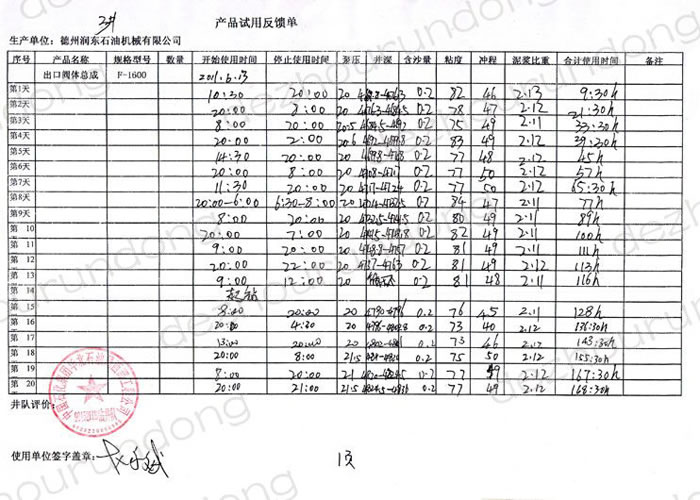 2#
产品试用反馈单
生产单位: 德州润东石油机械有限公司
序号 产品名称 规格型号 数量 开始使用时间 停止使用时间 泵压 井深 含沙量 粘度 冲程 泥浆比重 合计使用时间 备注
出口阀体总成 F-1600 2011.6.13
第1天 10:30 20:00 20 0.2 82 46 2.13 9:30h
第2天 20:00 8:00 20 0.2 78 47 2.12 21:30h
第3天 8:00 20:00 20.5 0.2 75 49 2.11 33:30h
第4天 20:00 2:00 20.6 0.2 83 49 2.12 39:30h
第5天 14:30 20:00 20 0.2 77 48 2.12 45h
第6天 20:00 8:00 20 0.2 77 50 2.12 57h
第7天 11:30 20:00 20 4717-4724 0.2 77 50 2.12 65:30h
第8天 20:00-6:00 6:30-8:00 20 0.2 84 47 2.11 77h
第9天 8:00 20:00 20 0.2 80 49 2.11 89h
第 10 20:00 7:00 20 0.2 82 49 2.11 100h
第 11 9:00 20:00 20 0.2 81 49 2.11 111h
第 12 20:00 22:00 20 4757-4763 0.2 81 49 2.12 113h
第 13 9:00 12:00 20 0.2 81 48 2.11 116h
第 14 起钻
第 15 8:00 20:00 20 4790-4796 0.2 76 45 2.11 128h
第 16 20:00 4:30 20 0.2 73 40 2.12 136:30h
第 17 13:00 20:00 20 0.2 73 46 2.12 143:30h
第 18 20:00 8:00 21.5 0.2 75 50 2.12 155:30h
第 19 8:00 20:00 21 0.2 77 49 2.12 167:30h
第 20 20:00 21:00 21.5 0.2 77 49 2.12 168:30h
井队评价:
使用单位签字盖章:
1页
dezhourundong